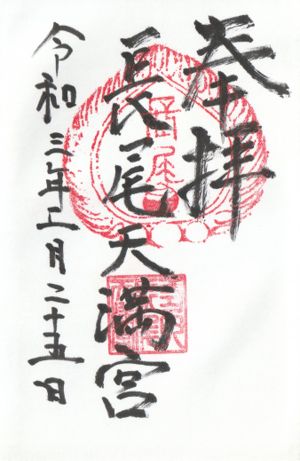 奉拝
長尾天満宮
令和三年十一月二十五日